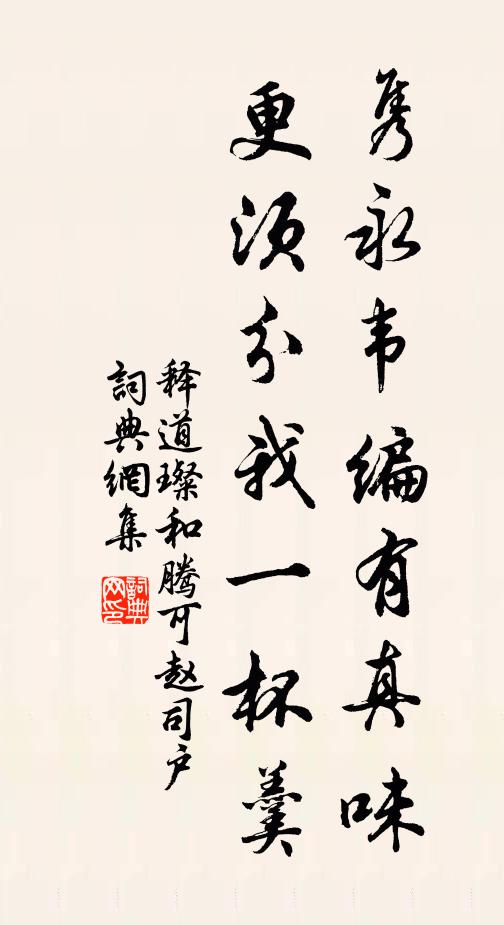 隽永韦编有真味
更须分我一杯羹
释道璨和腾可赵司户
词典網集
詞典
网印